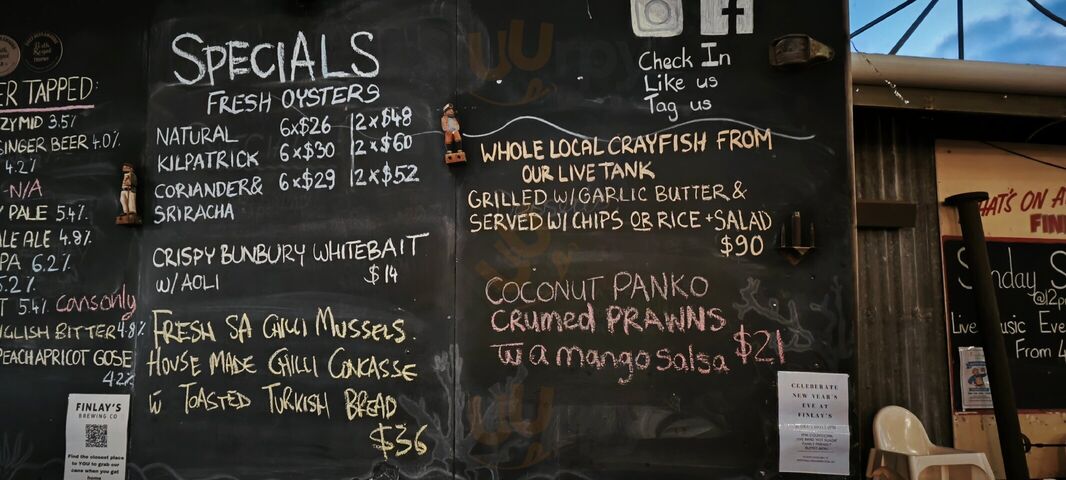 ER TAPPED:
ZY MID 3.5%
GINGER BEER 4.0%
4.2%
-N/A
Y PALE 5.4%
ALE ALE 4.8%
PA 6.2%
5.2%
T 5.4% cans only
NGLISH BITTER 4.8%
PEACH APRICOT GOSE
4.2%
FINLAY'S
BREWING CO
Find the closest place
to YOU to grab our
cans when you get
home
SPECIALS
FRESH OYSTERS
NATURAL 6x$26 12x$48
KILPATRICK 6x$30 12x$60
CORIANDER& 6x$29 12x$52
SRIRACHA
CRISPY BUNBURY WHITEBAIT
W/AOLI $14
FRESH SA CHILLI MUSSELS.
HOUSE MADE CHILLI CONCASSE
w TOASTED TURKISH BREAD
$36
f
Check In
Like us
Tag us
WHOLE LOCAL CRAYFISH FROM
OUR LIVE TANK
GRILLED W/GARLIC BUTTER &
SERVED W/ CHIPS OR RICE + SALAD
$90
COCONUT PANKO
CRUMED PRAWNS
w a mango salsa $21
CELEBERATE
NEW YEAR'S
EVE AT
FINLAY'S
HAT'S ON A
FIN
Sunday S
@12p
Live Music Eve
From 4